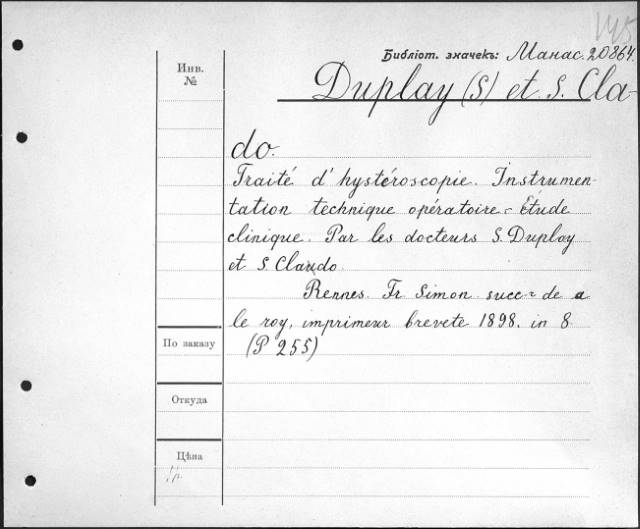 145
Библіот. значекъ: Манас. 20864.
Инв.
№
Duplay (S) et S. Cla-
do.
Traité d'hystéroscopie. Instrumen-
tation technique opératoire = Étude
clinique. Par les docteurs S. Duplay
et S. Claudo.
Rennes. Fr. Simon succ-r de a
le roy, imprimeur breveté 1898. in 8
(P 255)
По заказу
Откуда
Цѣна